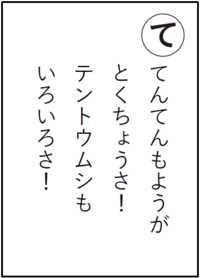 て
てんてんもようが
とくちょうさ！
テントウムシも
いろいろさ！